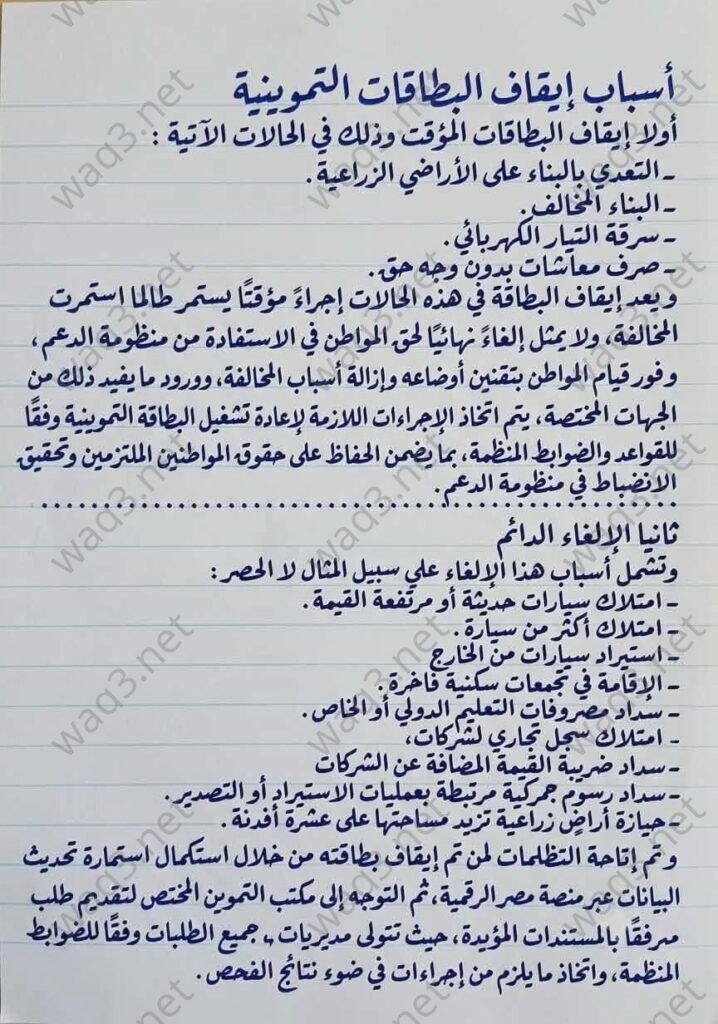 أسباب إيقاف البطاقات التموينية
أولا إيقاف البطاقات المؤقت وذلك في الحالات الآتية :
- التعدي بالبناء على الأراضي الزراعية .
- البناء المخالف .
- سرقة التيار الكهربائي .
- صرف معاشات بدون وجه حق .
ويعد إيقاف البطاقة في هذه الحالات إجراءً مؤقتًا يستمر طالما استمرت
المخالفة، ولا يمثل إلغاءً نهائيًا لحق المواطن في الاستفادة من منظومة الدعم،
وفور قيام المواطن بتقنين أوضاعه وإزالة أسباب المخالفة، وورود ما يفيد ذلك من
الجهات المختصة، يتم اتخاذ الإجراءات اللازمة لإعادة تشغيل البطاقة التموينية وفقًا
للقواعد والضوابط المنظمة، بما يضمن الحفاظ على حقوق المواطنين الملتزمين وتحقيق
الانضباط في منظومة الدعم .
ثانيا الإلغاء الدائم
وتشمل أسباب هذا الإلغاء علي سبيل المثال لا الحصر :
- امتلاك سيارات حديثة أو مرتفعة القيمة .
- امتلاك أكثر من سيارة .
- استيراد سيارات من الخارج
- الإقامة في تجمعات سكنية فاخرة .
- سداد مصروفات التعليم الدولي أو الخاص .
- امتلاك سجل تجاري لشركات،
- سداد ضريبة القيمة المضافة عن الشركات
- سداد رسوم جمركية مرتبطة بعمليات الاستيراد أو التصدير .
- حيازة أراضٍ زراعية تزيد مساحتها على عشرة أفدنة .
وتم إتاحة التظلمات لمن تم إيقاف بطاقته من خلال استكمال استمارة تحديث
البيانات عبر منصة مصر الرقمية، ثم التوجه إلى مكتب التموين المختص لتقديم طلب
مرفقًا بالمستندات المؤيدة، حيث تتولى مديريات جميع الطلبات وفقًا للضوابط
المنظمة، واتخاذ ما يلزم من إجراءات في ضوء نتائج الفحص .
waq3.net